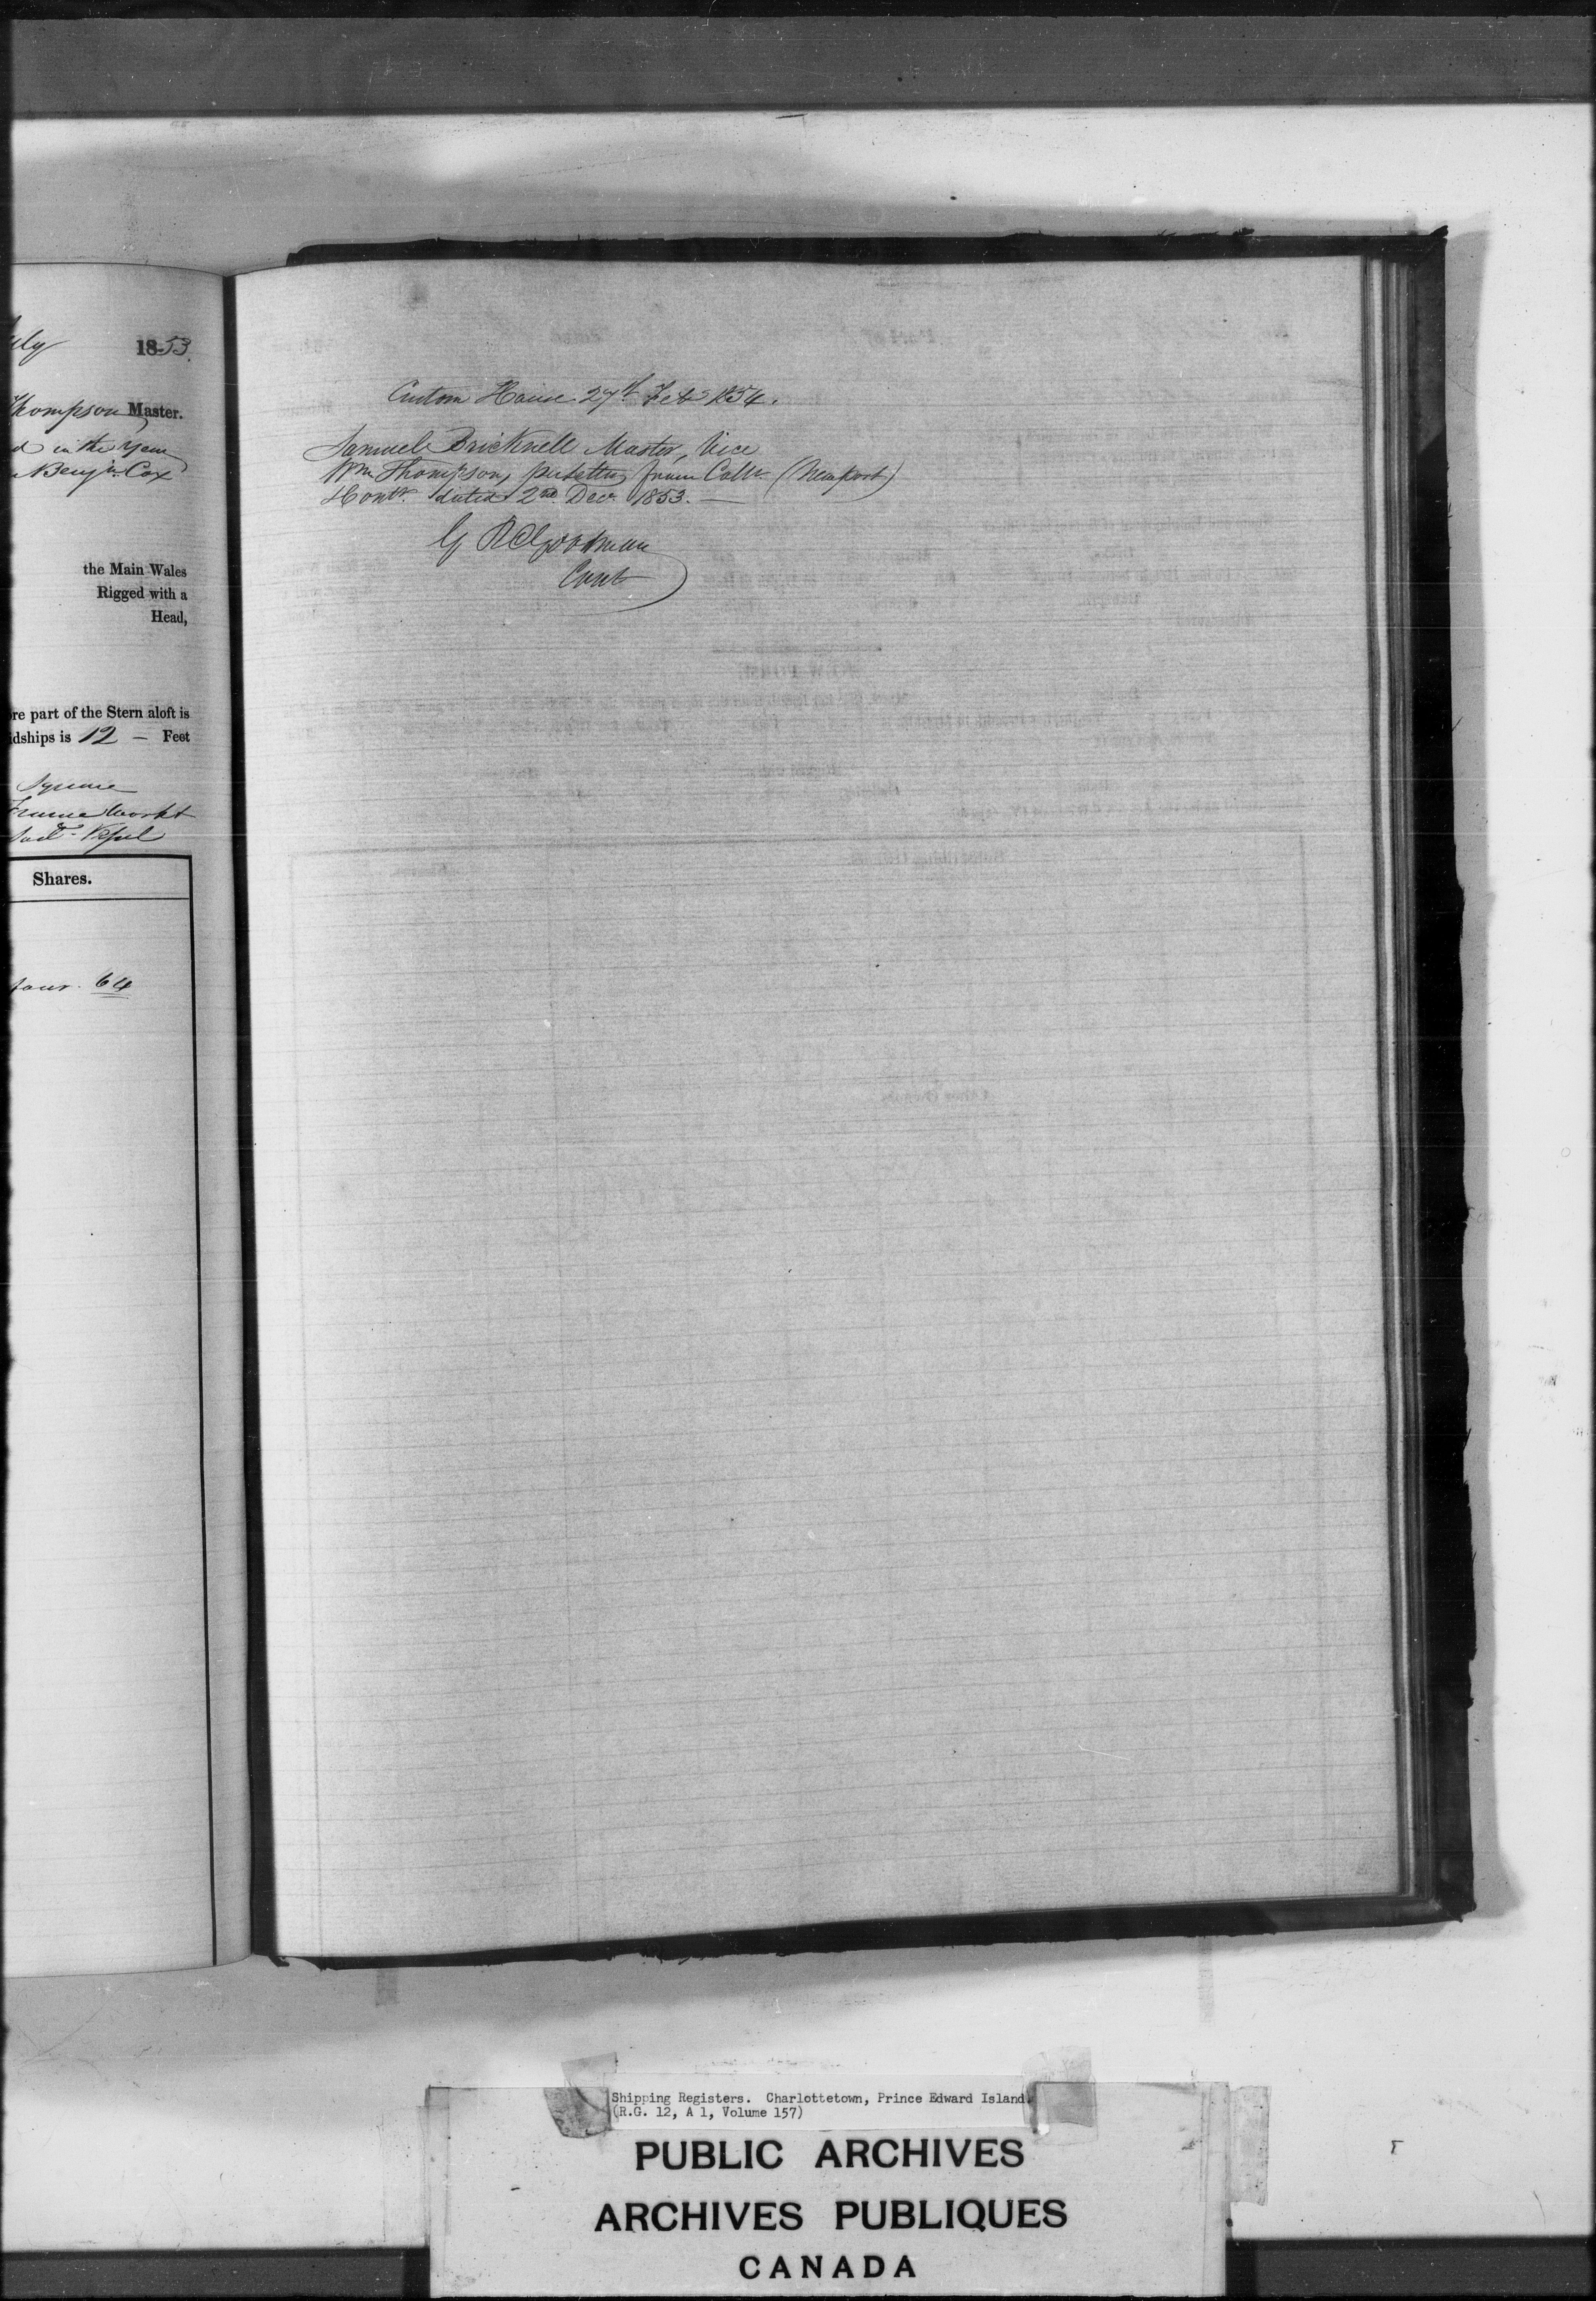 July 1853.
Thompson Master.
in the Year
Benjn. Cox
the Main Wales
Rigged with a
Head,
ore part of the Stern aloft is
idships is 12 – Feet
Square
Frame Work
Vessel
Shares.
four. 64
Custom House 27th Feb 1854.
Samuel Bricknell Master, Vice
Wm Thompson, pr letter from Collr (Newport)
Montr. dated 2nd Decr 1853. —
G R Goodman
Cont
Shipping Registers. Charlottetown, Prince Edward Island.
(R.G. 12, A 1, Volume 157)
PUBLIC ARCHIVES
ARCHIVES PUBLIQUES
CANADA